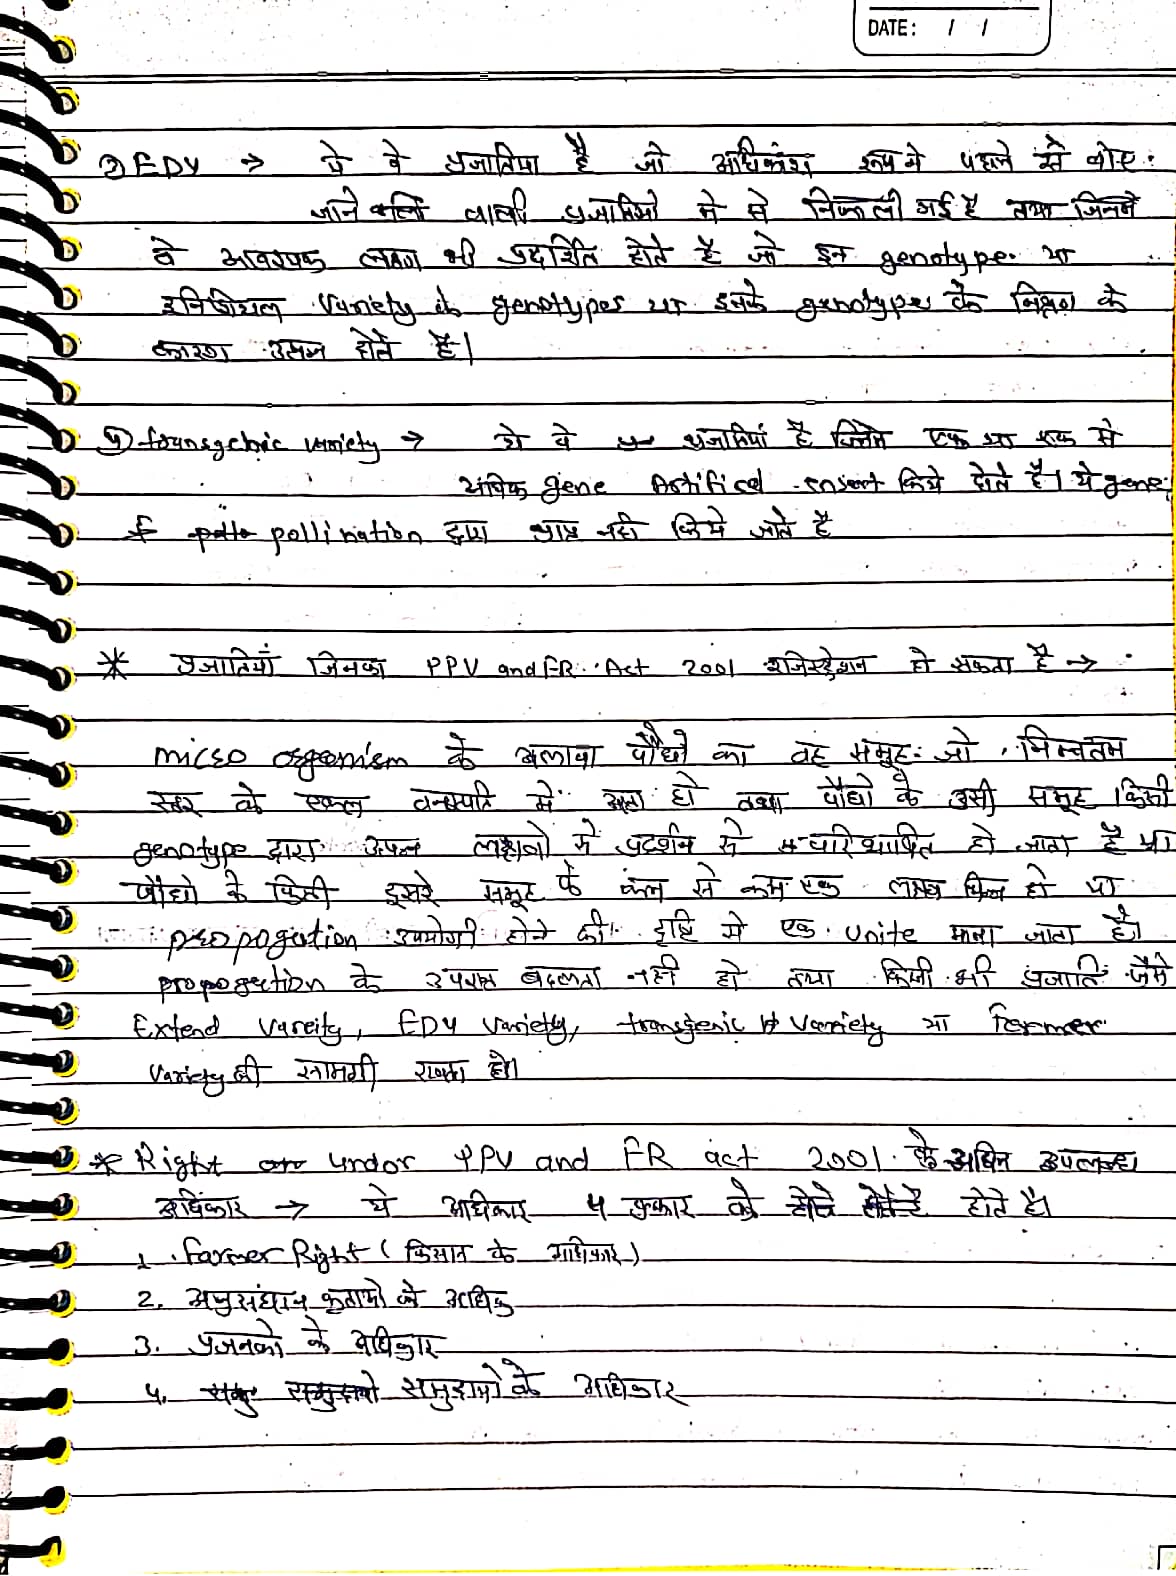 DATE: / /
③ EDV → ये वे प्रजातिया है जो अधिकांश रूप मे पहले से बोए
जाने वाली प्रजातियो मे से निकाली गई है तथा जिनमे
वे आवश्यक लक्षण भी प्रदर्शित होते है जो इन genotype या
इनिशियल Variety के genotypes या इनके genotype के मिश्रण के
कारण उत्पन्न होते है।
④ transgenic variety → ये वे प्रजातियां है जिनमे एक या एक से
अधिक gene Artifical insert किये होते है। ये gene
pollination द्वारा प्राप्त नही किये जाते है
* प्रजातियाँ जिनका PPV and FR Act 2001 रजिस्ट्रेशन हो सकता है →
micro organism के अलावा पौधो का वह समूह जो निम्नतम
स्तर के एकल वनस्पति मे आता हो तथा पौधो के उसी समूह किसी
genotype द्वारा उत्पन्न लक्षणो मे प्रदर्शन से परिभाषित हो जाता है या
पौधो के किसी दूसरे समूह के कम से कम एक लक्षण भिन्न हो या
propogation उपयोगी होने की दृष्टि से एक unite माना जाता है।
propogation के उपरान्त बदलता नही हो तथा किसी भी प्रजाति जैसे
Extend Vareity, EDV Variety, transgenic Variety या Farmer
Variety की सामग्री रखता हो।
* Right under PPV and FR act 2001 के अधिन उपलब्ध
अधिकार → ये अधिकार 4 प्रकार के होते है।
1. Farmer Right ( किसान के अधिकार )
2. अनुसंधान कृताओ के अधिक
3. प्रजनको के अधिकार
4. समुदायो के अधिकार